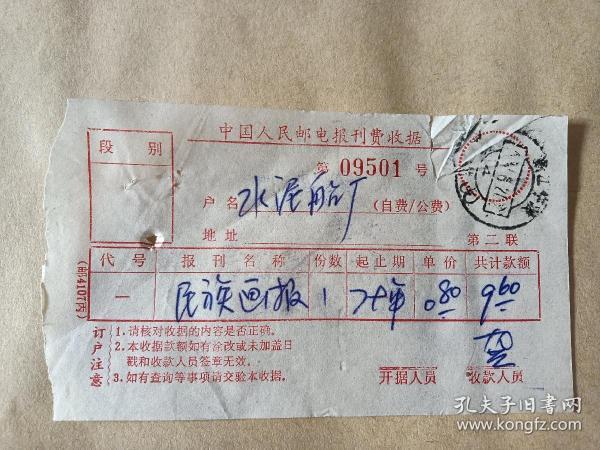 中国人民邮电报刊费收据
段 别
第 09501 号
户名 水泥船厂 (自费/公费)
地址
第二联
代号 报刊名称 份数 起止期 单价 共计款额
一 民族画报 1 7.80 9.60
(邮4107丙)
订户注意
1.请核对收据的内容是否正确。
2.本收据款额如有涂改或未加盖日
戳和收款人员签章无效。
3.如有查询等事项请交验本收据。
开据人员 收款人员
孔夫子旧书网
www.kongfz.com